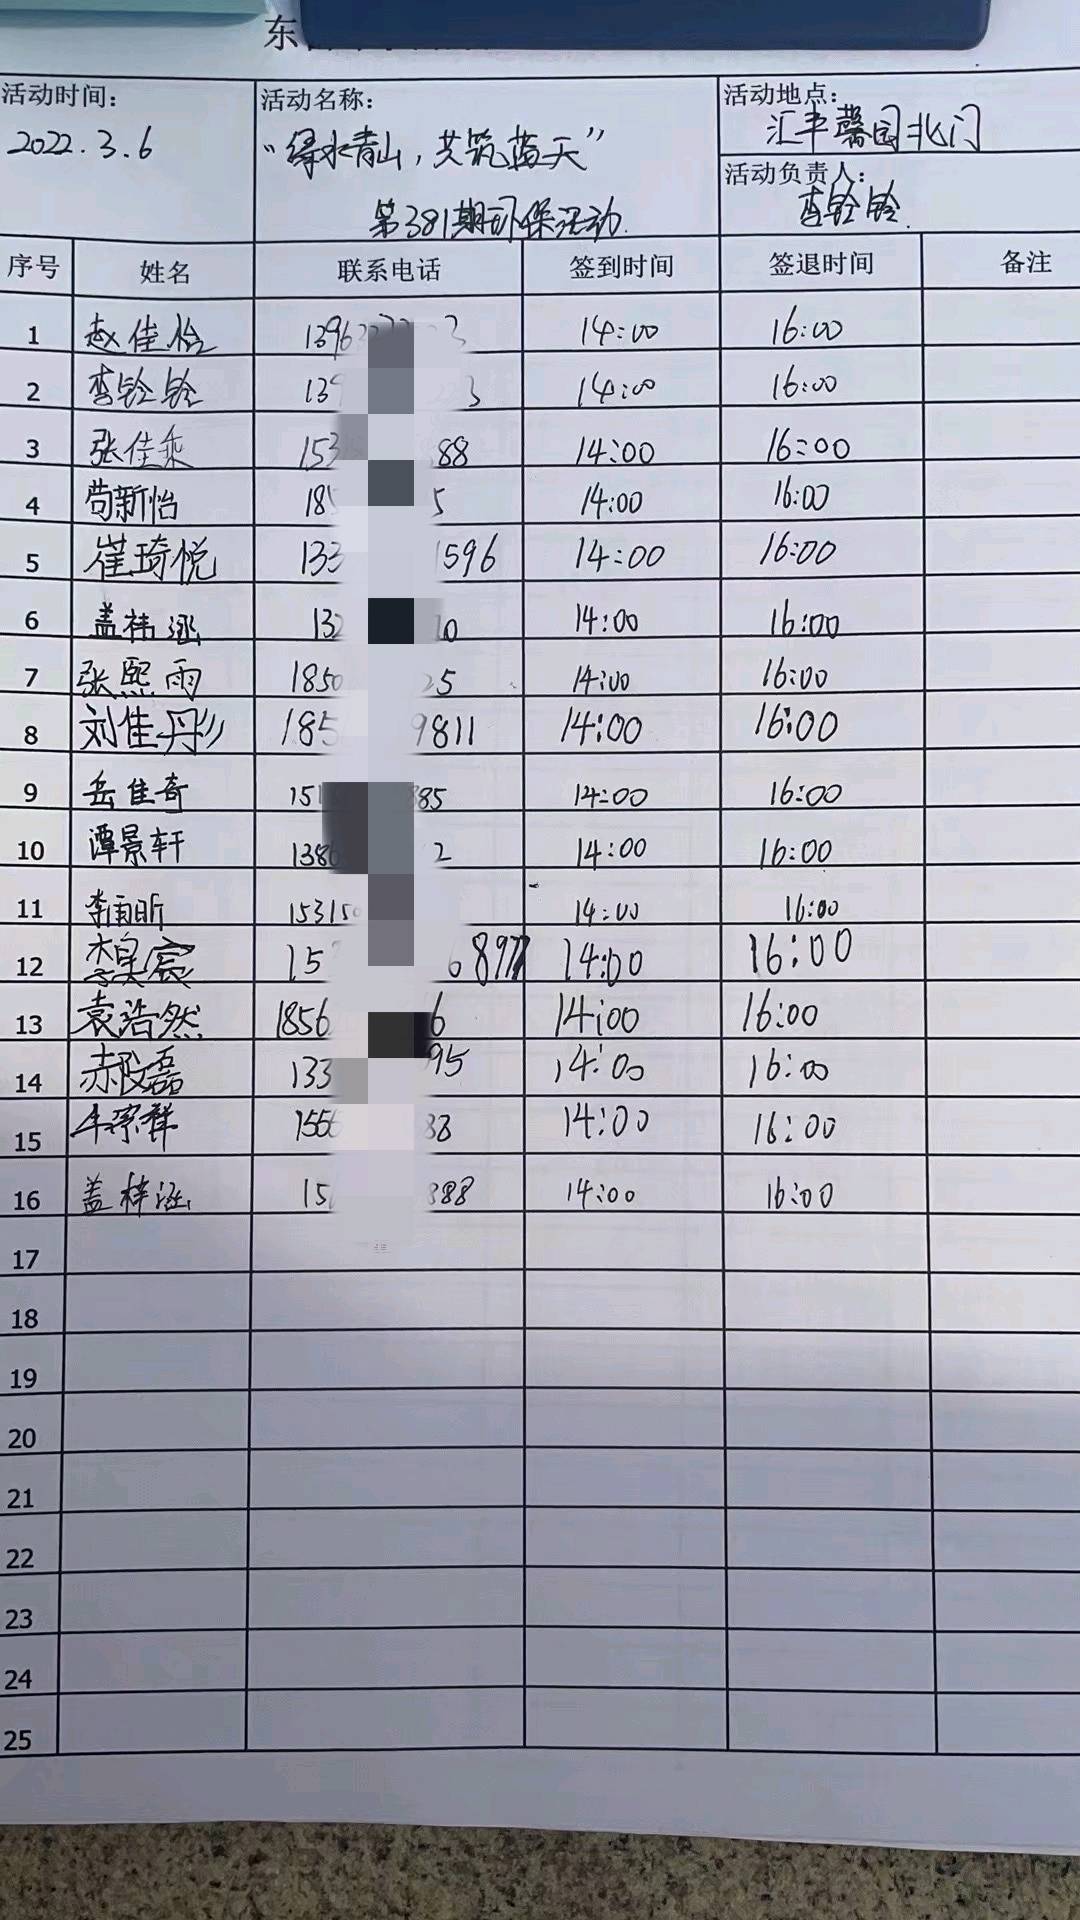 东
活动时间：
2022.3.6
活动名称：
“绿水青山，共筑蓝天”
第381期环保活动.
活动地点：
汇丰馨园北门
活动负责人：
李铃铃.
序号 姓名 联系电话 签到时间 签退时间 备注
1 赵佳怡 1396 3 14:00 16:00
2 李铃铃 139 3 14:00 16:00
3 张佳乘 153 88 14:00 16:00
4 苟新怡 185 5 14:00 16:00
5 崔琦悦 133 1596 14:00 16:00
6 盖祎涵 132 10 14:00 16:00
7 张熙雨 1850 25 14:00 16:00
8 刘佳彤 185 9811 14:00 16:00
9 岳佳奇 151 885 14:00 16:00
10 谭景轩 1386 2 14:00 16:00
11 李雨昕 153150 14:00 16:00
12 宸 15 6897 14:00 16:00
13 袁浩然 1856 6 14:00 16:00
14 磊 133 95 14:00 16:00
15 牛宗祥 1556 88 14:00 16:00
16 盖梓涵 15 888 14:00 16:00
17
18
19
20
21
22
23
24
25